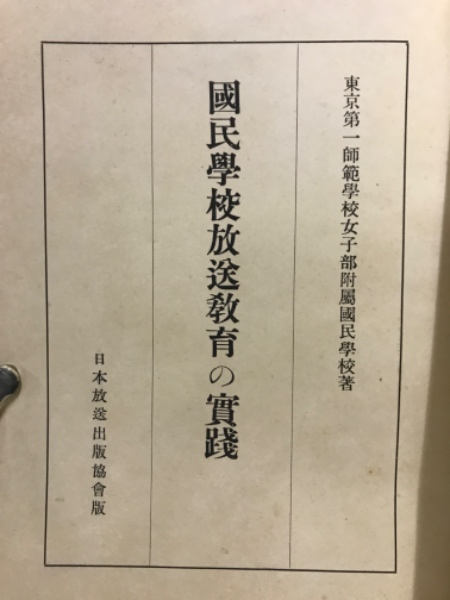 東京第一師範學校女子部附屬國民學校著
國民學校放送敎育の實踐
日本放送出版協會版